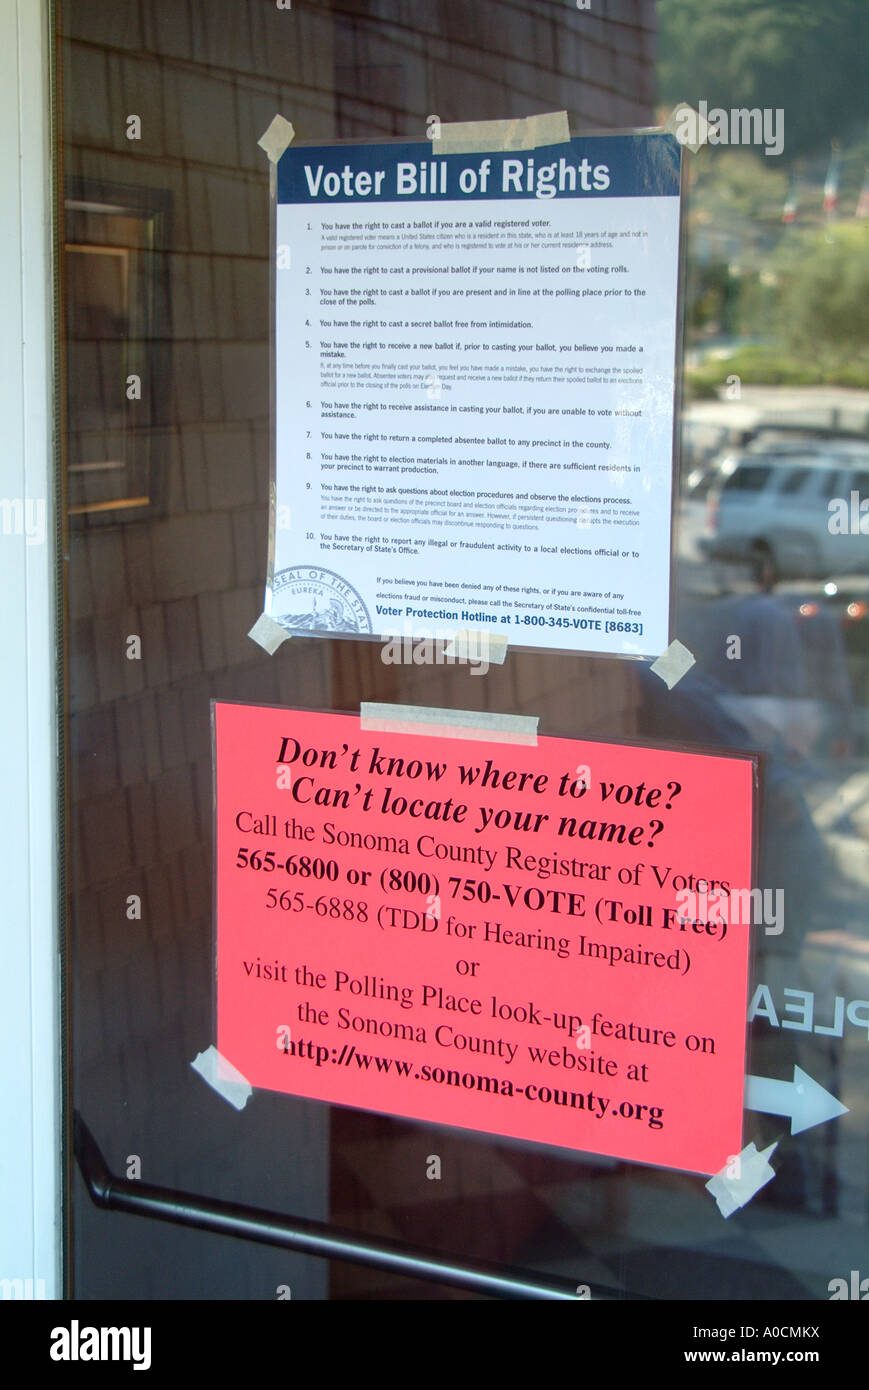 Voter Bill of Rights
1. You have the right to cast a ballot if you are a valid registered voter.
A valid registered voter means a United States citizen who is a resident in this state, who is at least 18 years of age and not in
prison or on parole for conviction of a felony, and who is registered to vote at his or her current residence address.
2. You have the right to cast a provisional ballot if your name is not listed on the voting rolls.
3. You have the right to cast a ballot if you are present and in line at the polling place prior to the
close of the polls.
4. You have the right to cast a secret ballot free from intimidation.
5. You have the right to receive a new ballot if, prior to casting your ballot, you believe you made a
mistake.
If, at any time before you finally cast your ballot, you feel you have made a mistake, you have the right to exchange the spoiled
ballot for a new ballot. Absentee voters may also request and receive a new ballot if they return their spoiled ballot to an elections
official prior to the closing of the polls on Election Day.
6. You have the right to receive assistance in casting your ballot, if you are unable to vote without
assistance.
7. You have the right to return a completed absentee ballot to any precinct in the county.
8. You have the right to election materials in another language, if there are sufficient residents in
your precinct to warrant production.
9. You have the right to ask questions about election procedures and observe the elections process.
You have the right to ask questions of the precinct board and election officials regarding election procedures and to receive
an answer or be directed to the appropriate official for an answer. However, if persistent questioning disrupts the execution
of their duties, the board or election officials may discontinue responding to questions.
10. You have the right to report any illegal or fraudulent activity to a local elections official or to
the Secretary of State's Office.
SEAL OF THE STAT
EUREKA
If you believe you have been denied any of these rights, or if you are aware of any
elections fraud or misconduct, please call the Secretary of State's confidential toll-free
Voter Protection Hotline at 1-800-345-VOTE [8683]
Don't know where to vote?
Can't locate your name?
Call the Sonoma County Registrar of Voters
565-6800 or (800) 750-VOTE (Toll Free)
565-6888 (TDD for Hearing Impaired)
or
visit the Polling Place look-up feature on
the Sonoma County website at
http://www.sonoma-county.org
PLEA
alamy
alamy
Image ID: A0CMKX
www.alamy.com